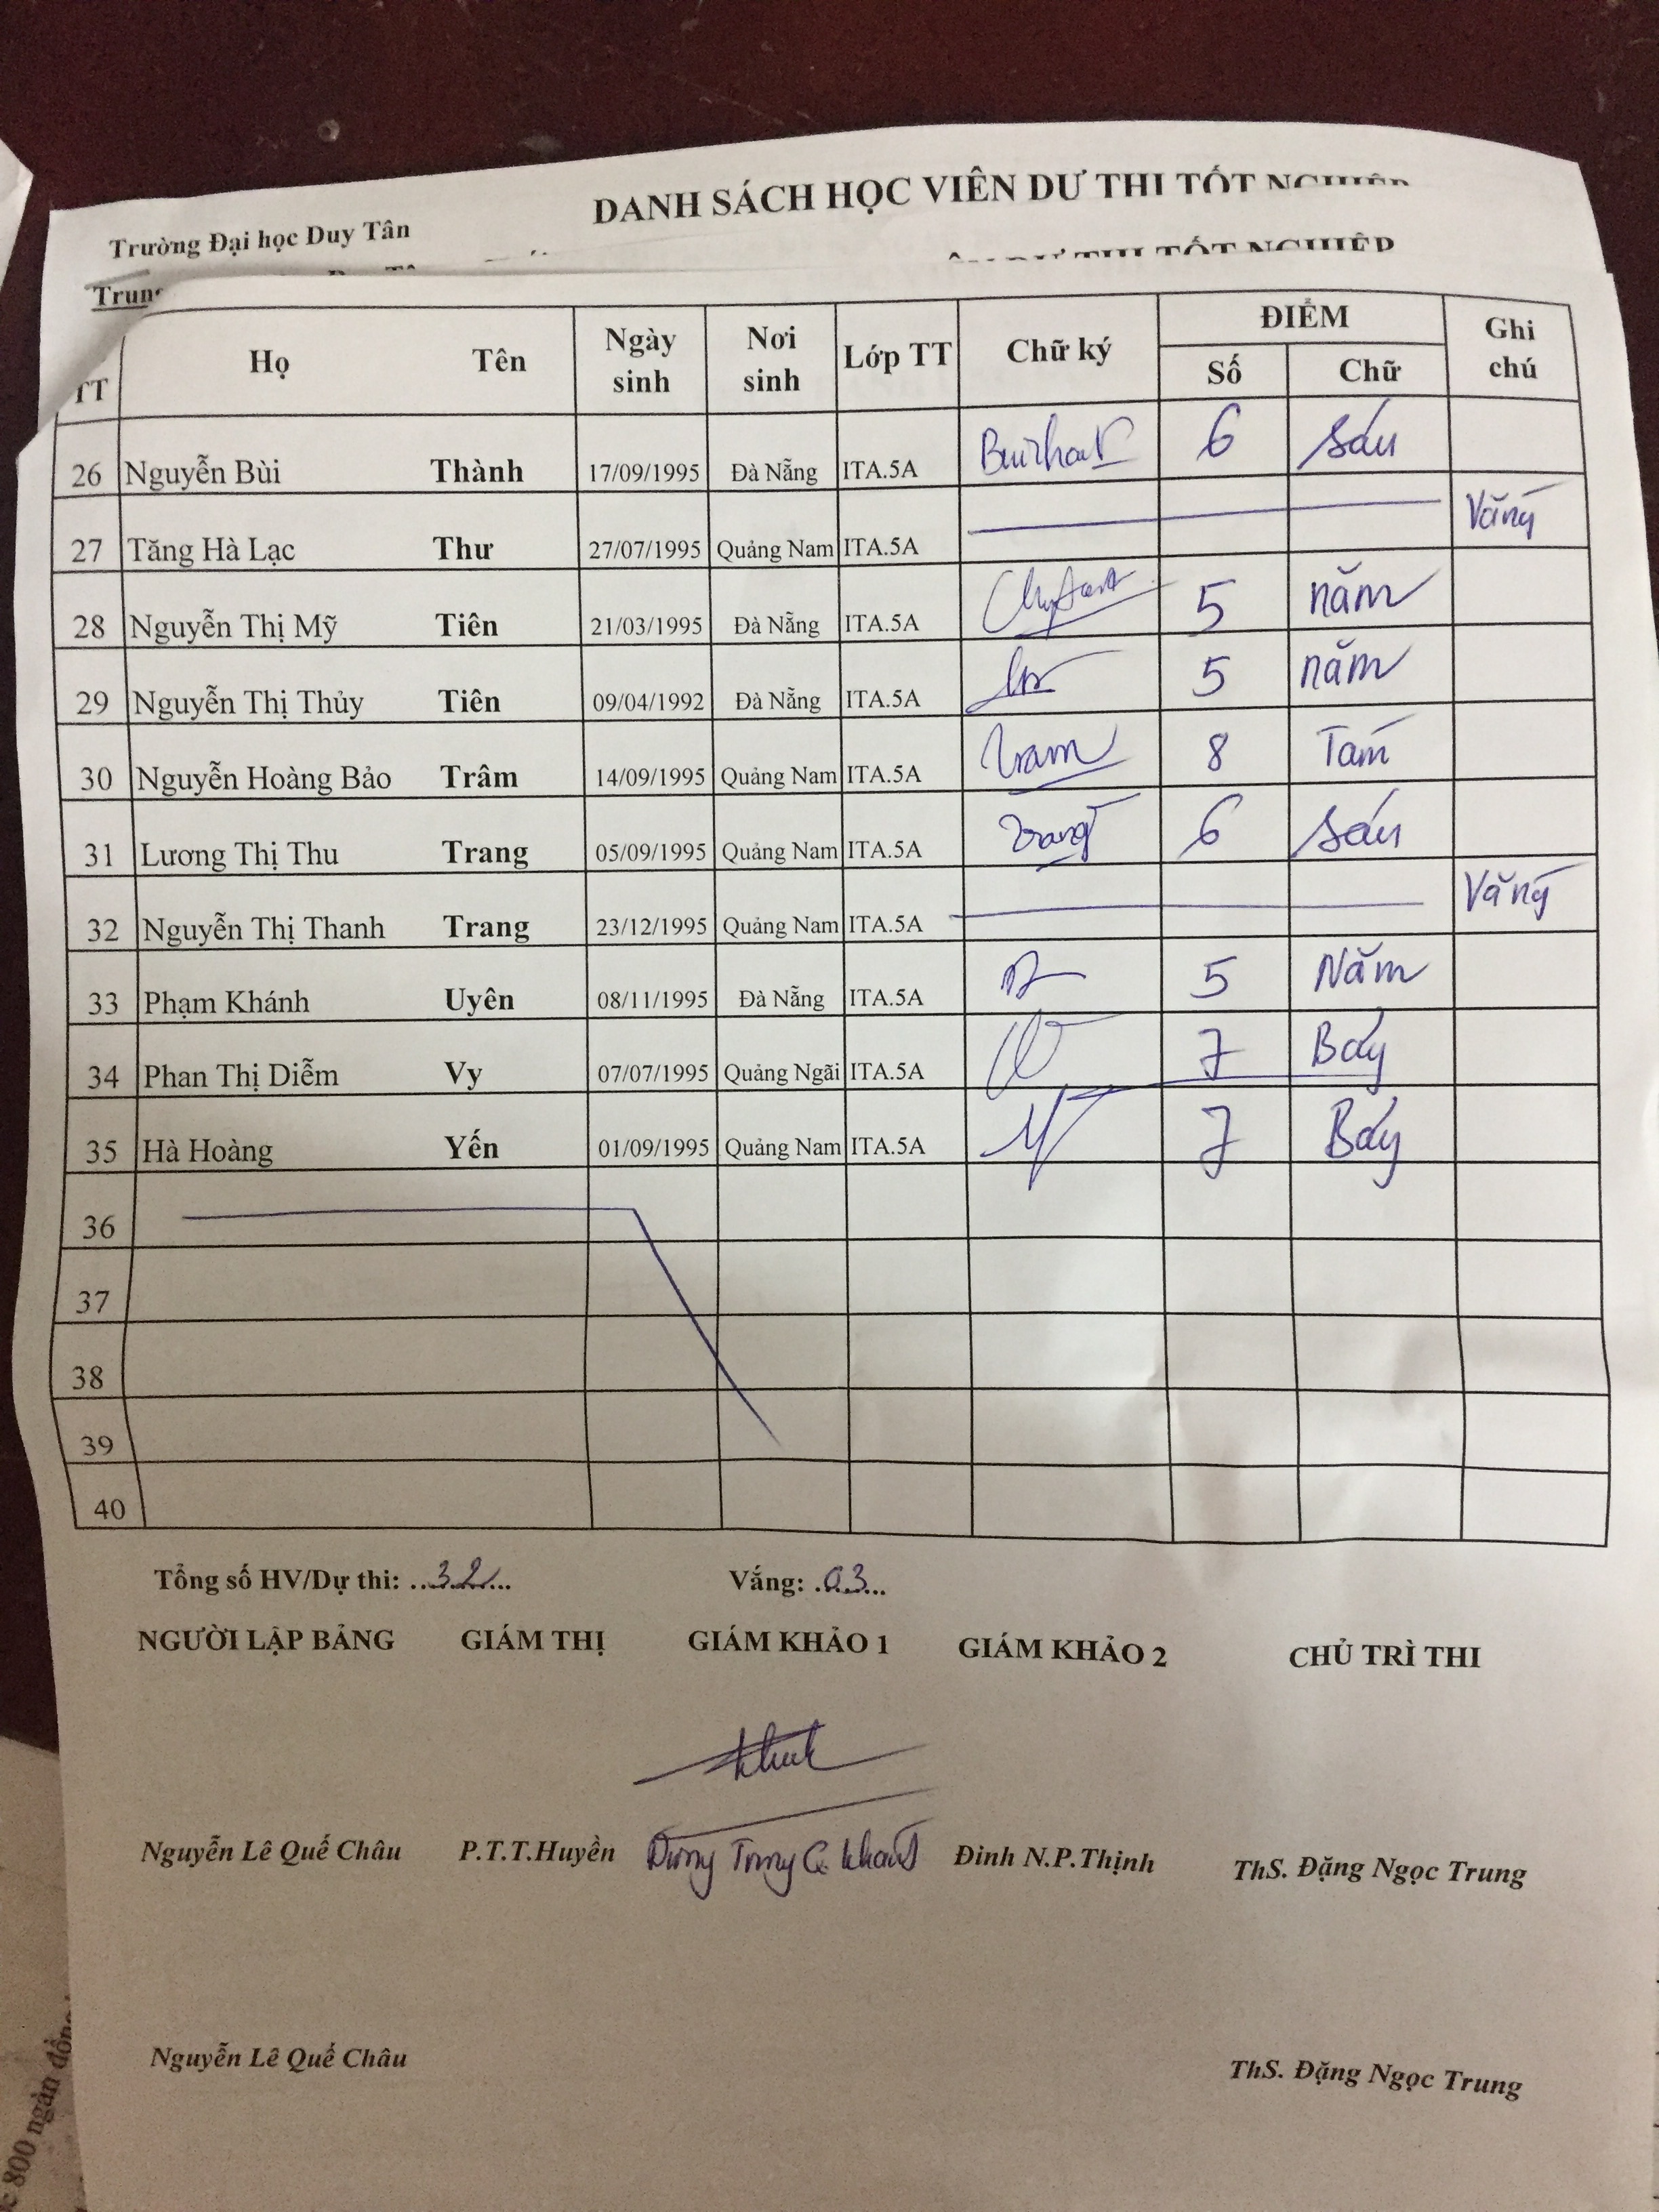 Trường Đại học Duy Tân
DANH SÁCH HỌC VIÊN DỰ THI TỐT NGHIỆP
DỰ THI TỐT NGHIỆP
Trung
TT Họ Tên Ngày sinh Nơi sinh Lớp TT Chữ ký ĐIỂM Số Chữ Ghi chú
26 Nguyễn Bùi Thành 17/09/1995 Đà Nẵng ITA.5A 6 Sáu
27 Tăng Hà Lạc Thư 27/07/1995 Quảng Nam ITA.5A Vắng
28 Nguyễn Thị Mỹ Tiên 21/03/1995 Đà Nẵng ITA.5A 5 năm
29 Nguyễn Thị Thủy Tiên 09/04/1992 Đà Nẵng ITA.5A 5 năm
30 Nguyễn Hoàng Bảo Trâm 14/09/1995 Quảng Nam ITA.5A Tram 8 Tám
31 Lương Thị Thu Trang 05/09/1995 Quảng Nam ITA.5A Trang 6 Sáu
32 Nguyễn Thị Thanh Trang 23/12/1995 Quảng Nam ITA.5A Vắng
33 Phạm Khánh Uyên 08/11/1995 Đà Nẵng ITA.5A 5 Năm
34 Phan Thị Diễm Vy 07/07/1995 Quảng Ngãi ITA.5A 7 Bảy
35 Hà Hoàng Yến 01/09/1995 Quảng Nam ITA.5A 7 Bảy
36
37
38
39
40
Tổng số HV/Dự thi: ..32... Vắng: .03...
NGƯỜI LẬP BẢNG GIÁM THỊ GIÁM KHẢO 1 GIÁM KHẢO 2 CHỦ TRÌ THI
Nguyễn Lê Quế Châu P.T.T.Huyền Đinh N.P.Thịnh ThS. Đặng Ngọc Trung
Nguyễn Lê Quế Châu ThS. Đặng Ngọc Trung
800 ngàn đồng